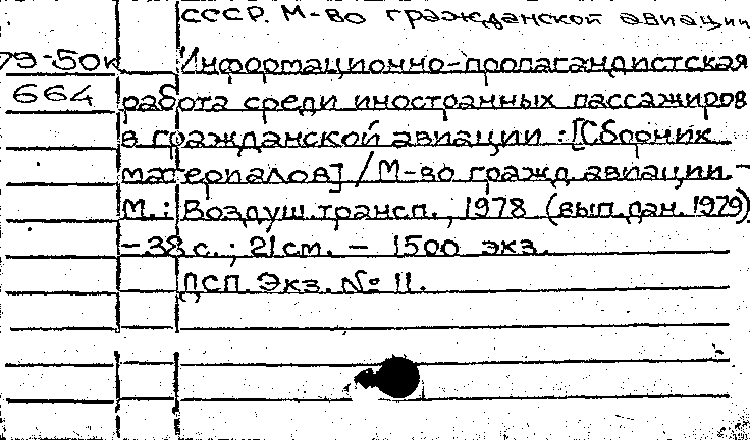 СССР. М-во гражданской авиации
79-50к Информационно-пропагандистская
664 работа среди иностранных пассажиров
в гражданской авиации : [Сборник
материалов] / М-во гражд. авиации. -
М. : Воздуш. трансп., 1978 (вып. дан. 1979)
- 38 с. ; 21 см. - 1500 экз.
ДСП. Экз. № 11.